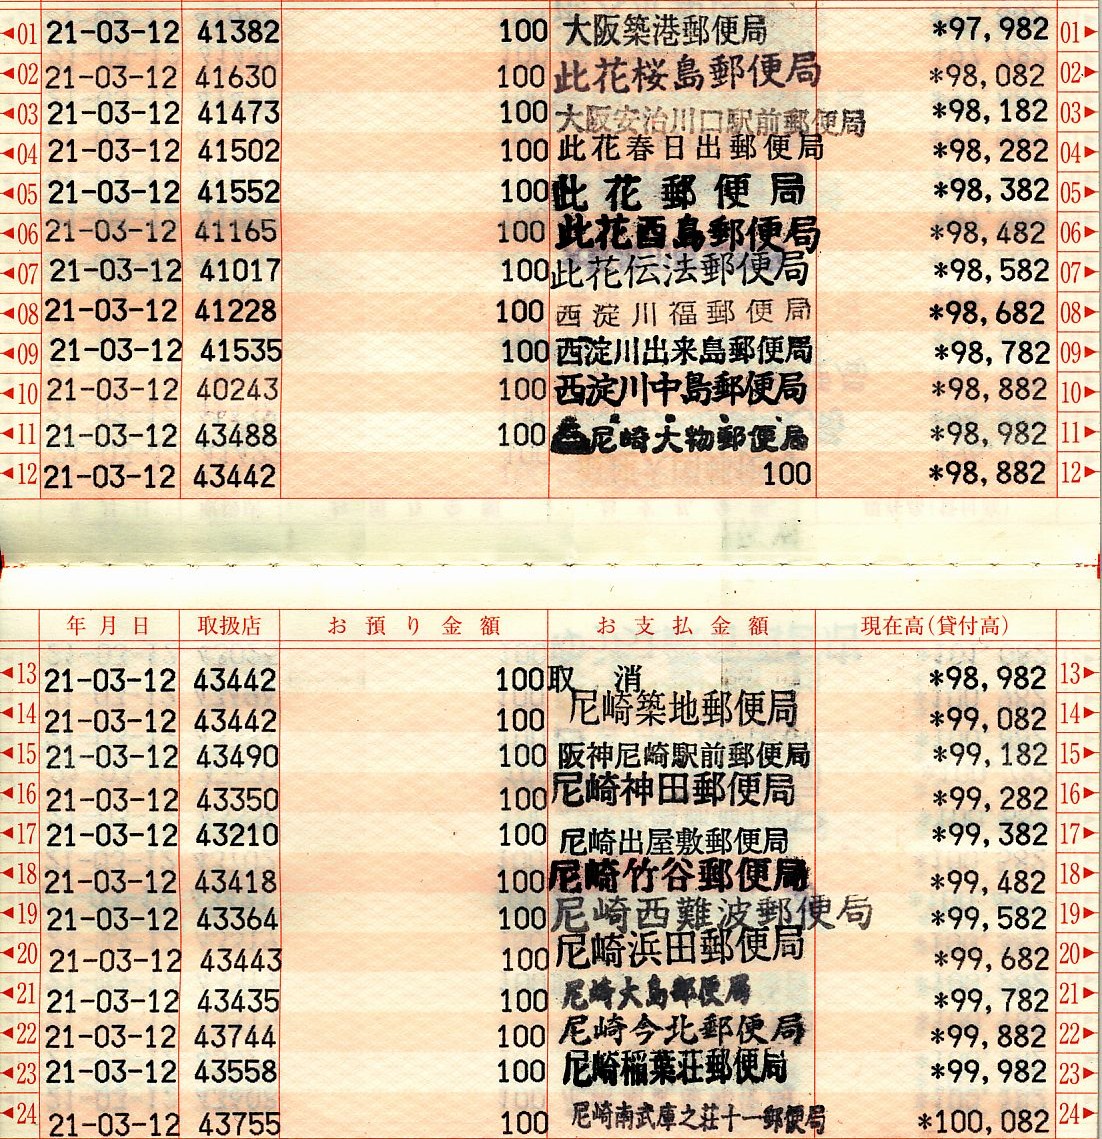 ◀01 21-03-12 41382 100 大阪築港郵便局 *97,982 01▶
◀02 21-03-12 41630 100 此花桜島郵便局 *98,082 02▶
◀03 21-03-12 41473 100 大阪安治川口駅前郵便局 *98,182 03▶
◀04 21-03-12 41502 100 此花春日出郵便局 *98,282 04▶
◀05 21-03-12 41552 100 此花郵便局 *98,382 05▶
◀06 21-03-12 41165 100 此花酉島郵便局 *98,482 06▶
◀07 21-03-12 41017 100 此花伝法郵便局 *98,582 07▶
◀08 21-03-12 41228 100 西淀川福郵便局 *98,682 08▶
◀09 21-03-12 41535 100 西淀川出来島郵便局 *98,782 09▶
◀10 21-03-12 40243 100 西淀川中島郵便局 *98,882 10▶
◀11 21-03-12 43488 100 尼崎大物郵便局 *98,982 11▶
◀12 21-03-12 43442 100 *98,882 12▶
年月日 取扱店 お預り金額 お支払金額 現在高(貸付高)
◀13 21-03-12 43442 100 取消 *98,982 13▶
◀14 21-03-12 43442 100 尼崎築地郵便局 *99,082 14▶
◀15 21-03-12 43490 100 阪神尼崎駅前郵便局 *99,182 15▶
◀16 21-03-12 43350 100 尼崎神田郵便局 *99,282 16▶
◀17 21-03-12 43210 100 尼崎出屋敷郵便局 *99,382 17▶
◀18 21-03-12 43418 100 尼崎竹谷郵便局 *99,482 18▶
◀19 21-03-12 43364 100 尼崎西難波郵便局 *99,582 19▶
◀20 21-03-12 43443 100 尼崎浜田郵便局 *99,682 20▶
◀21 21-03-12 43435 100 尼崎大島郵便局 *99,782 21▶
◀22 21-03-12 43744 100 尼崎今北郵便局 *99,882 22▶
◀23 21-03-12 43558 100 尼崎稲葉荘郵便局 *99,982 23▶
◀24 21-03-12 43755 100 尼崎南武庫之荘十一郵便局 *100,082 24▶